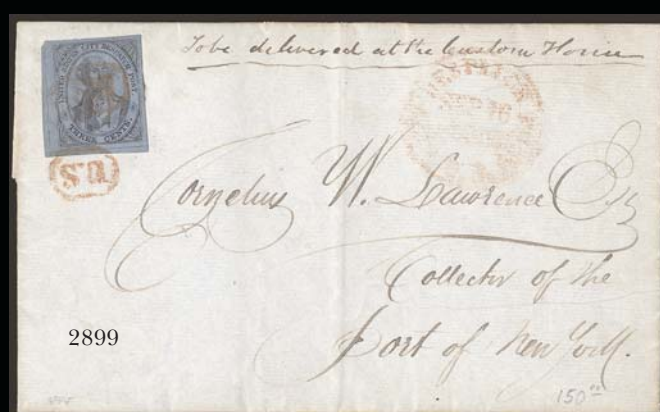 To be delivered at the Custom House
UNITED STATES CITY DESPATCH POST
THREE CENTS.
U.S
Cornelius W. Lawrence Esq
Collector of the
Port of New York.
2899
150